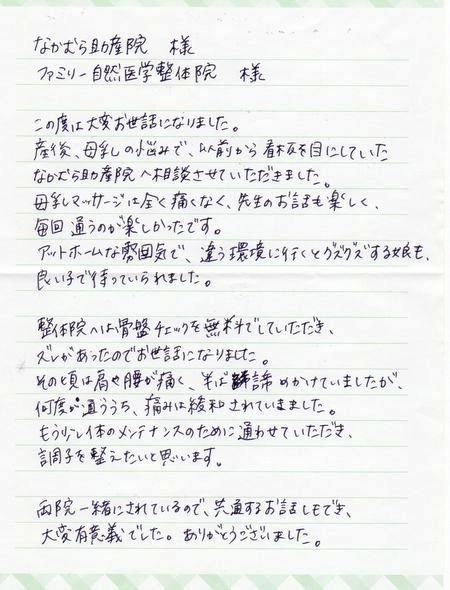 なかむら助産院 様
ファミリー自然医学整体院 様
この度は大変お世話になりました。
産後、母乳の悩みで、以前から看板を目にしていた
なかむら助産院へ相談させていただきました。
母乳マッサージは全く痛くなく、先生のお話も楽しく、
毎回通うのが楽しかったです。
アットホームな雰囲気で、違う環境に行くとグズグズする娘も、
良い子で待っていられました。
整体院へは骨盤チェックを無料でしていただき、
ズレがあったのでお世話になりました。
その頃は肩や腰が痛く、半ば諦めかけていましたが、
何度か通ううち、痛みは緩和されていきました。
もう少し体のメンテナンスのために通わせていただき、
調子を整えたいと思います。
両院一緒にされているので、共通するお話しもでき、
大変有意義でした。ありがとうございました。